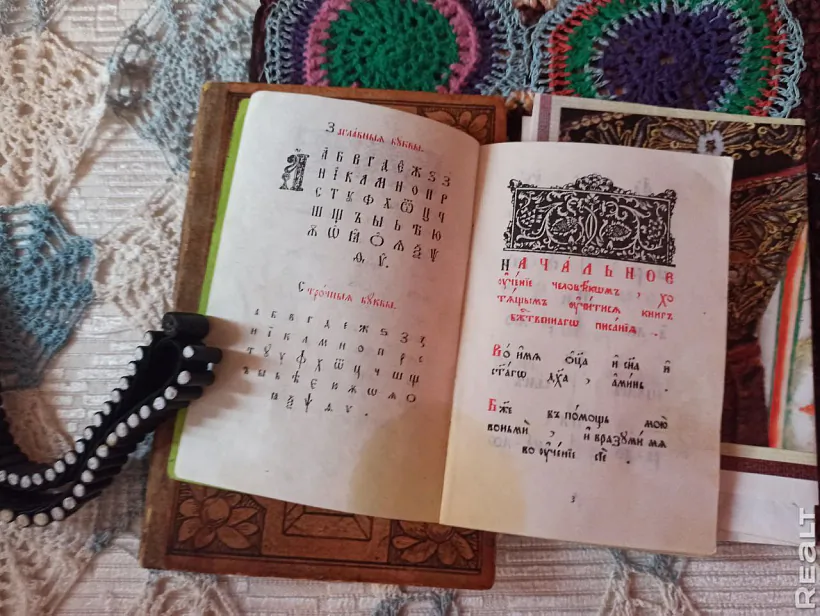 Заглавныя буквы.
А
А Б В Г Д Е Ж Ѕ З
И І К Л М Н О П Р
С Т Ꙋ Ф Х Ѿ Ц Ч
Ш Щ Ъ Ы Ь Ѣ Ю
Ѫ Ѡ
Ѯ Ѱ
Ѳ Ѵ.
Строчныя буквы.
а б в г д е ж ѕ з
и і к л м н о п р с
т ꙋ у ф х ѿ ц ч ш щ
ъ ы ь ѣ
ѯ ѱ ѳ ѵ .
НАЧА́ЛЬНОЕ
ᲂу҆че́нїе человѣ́кѡмъ , хо
тѧ́щымъ ᲂу҆чи́тисѧ книгъ
бж҃е́ственнагѡ писа́нїѧ .
Во и҆́мѧ ѻ҆ц҃а̀ и҆ сн҃а и҆
ст҃а́гѡ дх҃а , а҆ми́нь .
Бж҃е въ по́мощь мою̀
вонмѝ , и҆ вразꙋмѝ мѧ
во ᲂу҆че́нїе сїѐ .
з
Realt